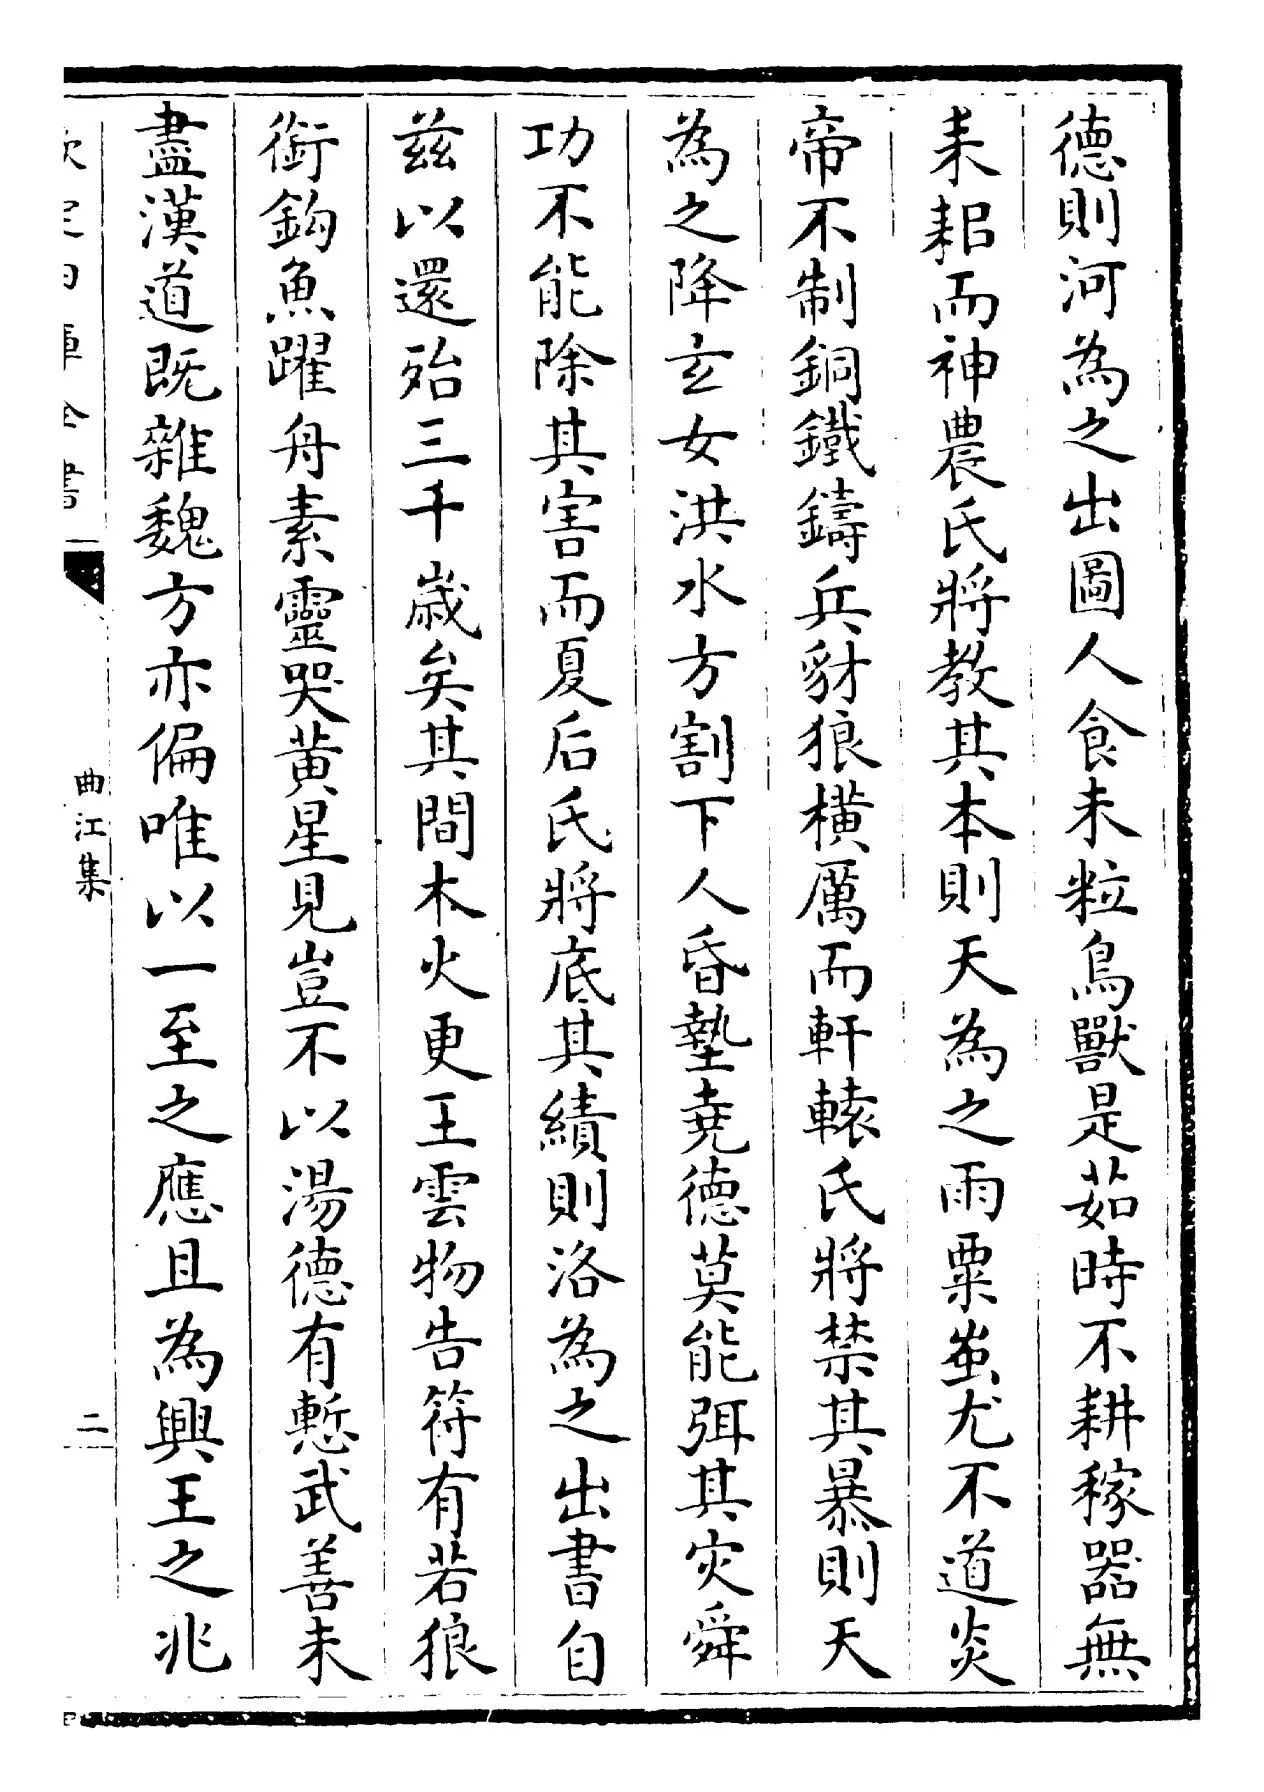 德則河為之出圖人食未粒鳥獸是茹時不耕稼器無
耒耜而神農氏將教其本則天為之雨粟蚩尤不道炎
帝不制銅鐵鑄兵豺狼横厲而軒轅氏將禁其暴則天
為之降玄女洪水方割下人昏墊堯德莫能弭其灾舜
功不能除其害而夏后氏將底其績則洛為之出書自
兹以還殆三千歲矣其間木火更王雲物告符有若狼
銜鈎魚躍舟素靈哭黄星見豈不以湯德有慙武善未
盡漢道既雜魏方亦偏唯以一至之應且為興王之兆
欽定四庫全書
曲江集
二